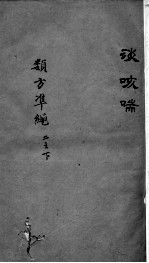 淡咳喘
類方準繩 二之下